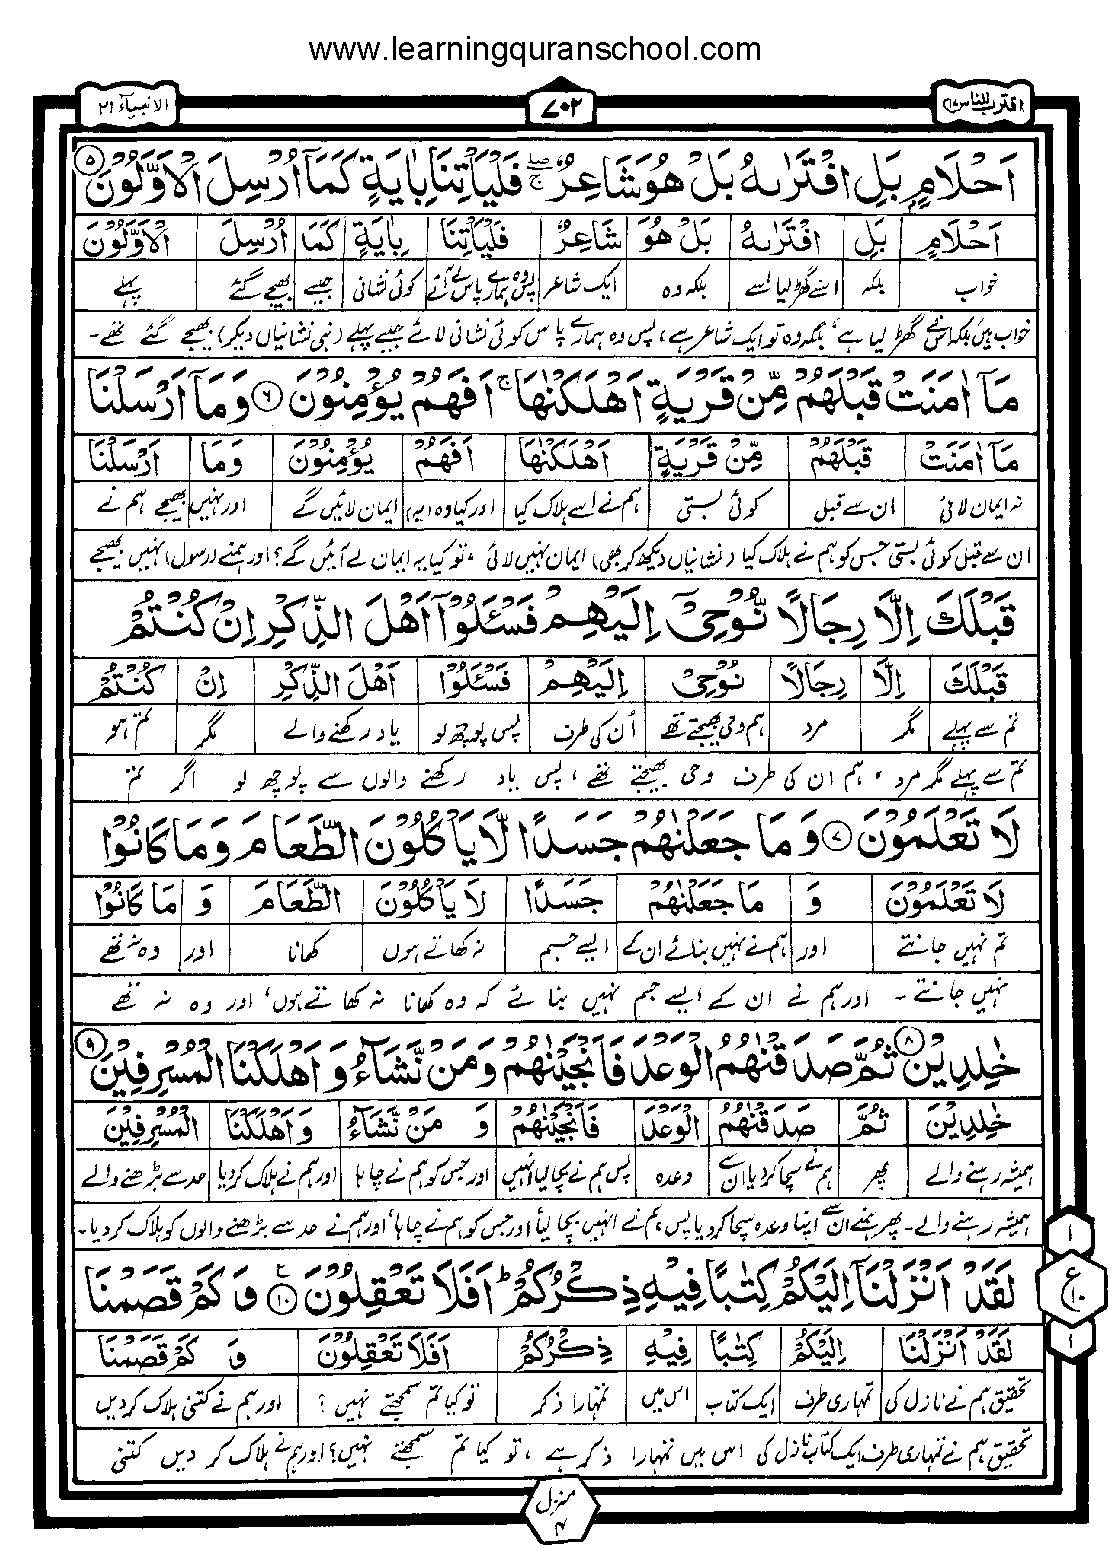 www.learningquranschool.com
اقترب للناس ١٧ ٧٠٢ الانبیآء ٢١
اَحْلَامٍۭ بَلِ افْتَرٰىهُ بَلْ هُوَ شَاعِرٌ ۖۚ فَلْيَاْتِنَا بِاٰيَةٍ كَمَاۤ اُرْسِلَ الْاَوَّلُوْنَ ۵
اَحْلَامٍ بَلِ افْتَرٰىهُ بَلْ هُوَ شَاعِرٌ فَلْيَاْتِنَا بِاٰيَةٍ كَمَاۤ اُرْسِلَ الْاَوَّلُوْنَ
خواب بلکہ اسنے گھڑ لیا اسے بلکہ وہ ایک شاعر پس وہ ہمارے پاس لے آئے کوئی نشانی جیسے بھیجے گئے پہلے
خواب ہیں بلکہ اس نے گھڑ لیا ہے، بلکہ وہ تو ایک شاعر ہے، پس وہ ہمارے پاس کوئی نشانی لائے جیسے پہلے (نبی نشانیاں دیکر) بھیجے گئے تھے۔
مَاۤ اٰمَنَتْ قَبْلَهُمْ مِّنْ قَرْيَةٍ اَهْلَكْنٰهَا ۚ اَفَهُمْ يُؤْمِنُوْنَ ۶ وَمَاۤ اَرْسَلْنَا
مَاۤ اٰمَنَتْ قَبْلَهُمْ مِّنْ قَرْيَةٍ اَهْلَكْنٰهَا اَفَهُمْ يُؤْمِنُوْنَ وَمَا اَرْسَلْنَا
نہ ایمان لائی ان سے قبل کوئی بستی ہم نے اسے ہلاک کیا اور کیا وہ (یہ) ایمان لائیں گے اور نہیں بھیجے ہم نے
ان سے قبل کوئی بستی جس کو ہم نے ہلاک کیا (نشانیاں دیکھ کر بھی) ایمان نہیں لائی، تو کیا یہ ایمان لے آئیں گے؟ اور ہمنے (رسول) نہیں بھیجے
قَبْلَكَ اِلَّا رِجَالًا نُّوْحِيْۤ اِلَيْهِمْ فَسْـَٔلُوْۤا اَهْلَ الذِّكْرِ اِنْ كُنْتُمْ
قَبْلَكَ اِلَّا رِجَالًا نُوْحِيْ اِلَيْهِمْ فَسْـَٔلُوْا اَهْلَ الذِّكْرِ اِنْ كُنْتُمْ
تم سے پہلے مگر مرد ہم وحی بھیجتے تھے اُن کی طرف پس پوچھ لو یاد رکھنے والے مگر تم ہو
تم سے پہلے مگر مرد، ہم ان کی طرف وحی بھیجتے تھے، پس یاد رکھنے والوں سے پوچھ لو اگر تم
لَا تَعْلَمُوْنَ ۷ وَمَا جَعَلْنٰهُمْ جَسَدًا لَّا يَاْكُلُوْنَ الطَّعَامَ وَمَا كَانُوْا
لَا تَعْلَمُوْنَ وَ مَا جَعَلْنٰهُمْ جَسَدًا لَا يَاْكُلُوْنَ الطَّعَامَ وَ مَا كَانُوْا
تم نہیں جانتے اور ہم نے نہیں بنائے ان کے ایسے جسم نہ کھاتے ہوں کھانا اور وہ نہ تھے
نہیں جانتے۔ اور ہم نے ان کے ایسے جسم نہیں بنائے کہ وہ کھانا نہ کھاتے ہوں، اور وہ نہ تھے
خٰلِدِيْنَ ۸ ثُمَّ صَدَقْنٰهُمُ الْوَعْدَ فَاَنْجَيْنٰهُمْ وَمَنْ نَّشَآءُ وَاَهْلَكْنَا الْمُسْرِفِيْنَ ۹
خٰلِدِيْنَ ثُمَّ صَدَقْنٰهُمُ الْوَعْدَ فَاَنْجَيْنٰهُمْ وَ مَنْ نَّشَآءُ وَاَهْلَكْنَا الْمُسْرِفِيْنَ
ہمیشہ رہنے والے پھر ہم نے سچا کر دیا ان سے وعدہ پس ہم نے بچا لیا انہیں اور جس کو ہم نے چاہا اور ہم نے ہلاک کر دیا حد سے بڑھنے والے
ہمیشہ رہنے والے۔ پھر ہمنے ان سے اپنا وعدہ سچا کر دیا پس ہم نے انہیں بچا لیا اور جس کو ہم نے چاہا، اور ہم نے حد سے بڑھنے والوں کو ہلاک کر دیا۔
لَقَدْ اَنْزَلْنَاۤ اِلَيْكُمْ كِتٰبًا فِيْهِ ذِكْرُكُمْ ؕ اَفَلَا تَعْقِلُوْنَ ۱۰ ع وَكَمْ قَصَمْنَا
لَقَدْ اَنْزَلْنَا اِلَيْكُمْ كِتٰبًا فِيْهِ ذِكْرُكُمْ اَفَلَا تَعْقِلُوْنَ وَ كَمْ قَصَمْنَا
تحقیق ہم نے نازل کی تمہاری طرف ایک کتاب اس میں تمہارا ذکر تو کیا تم سمجھتے نہیں؟ اور ہم نے کتنی ہلاک کر دیں
تحقیق ہم نے تمہاری طرف ایک کتاب نازل کی اس میں تمہارا ذکر ہے، تو کیا تم سمجھتے نہیں؟ اور ہم نے ہلاک کر دیں کتنی
۱
ع ۱۰
۱
منزل ۴